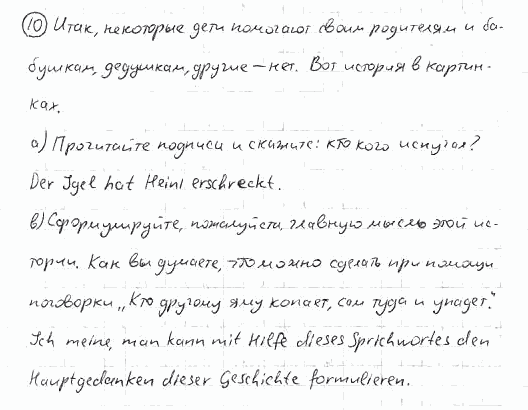 ⑩ Итак, некоторые дети помогают своим родителям и ба-
бушкам, дедушкам, другие – нет. Вот история в картин-
ках.
а) Прочитайте подписи и скажите: кто кого испугал?
Der Igel hat Heini erschreckt.
в) Сформулируйте, пожалуйста, главную мысль этой ис-
тории. Как вы думаете, это можно сделать при помощи
поговорки „Кто другому яму копает, сам туда и упадет."
Ich meine, man kann mit Hilfe dieses Sprichwortes den
Hauptgedanken dieser Geschichte formulieren.